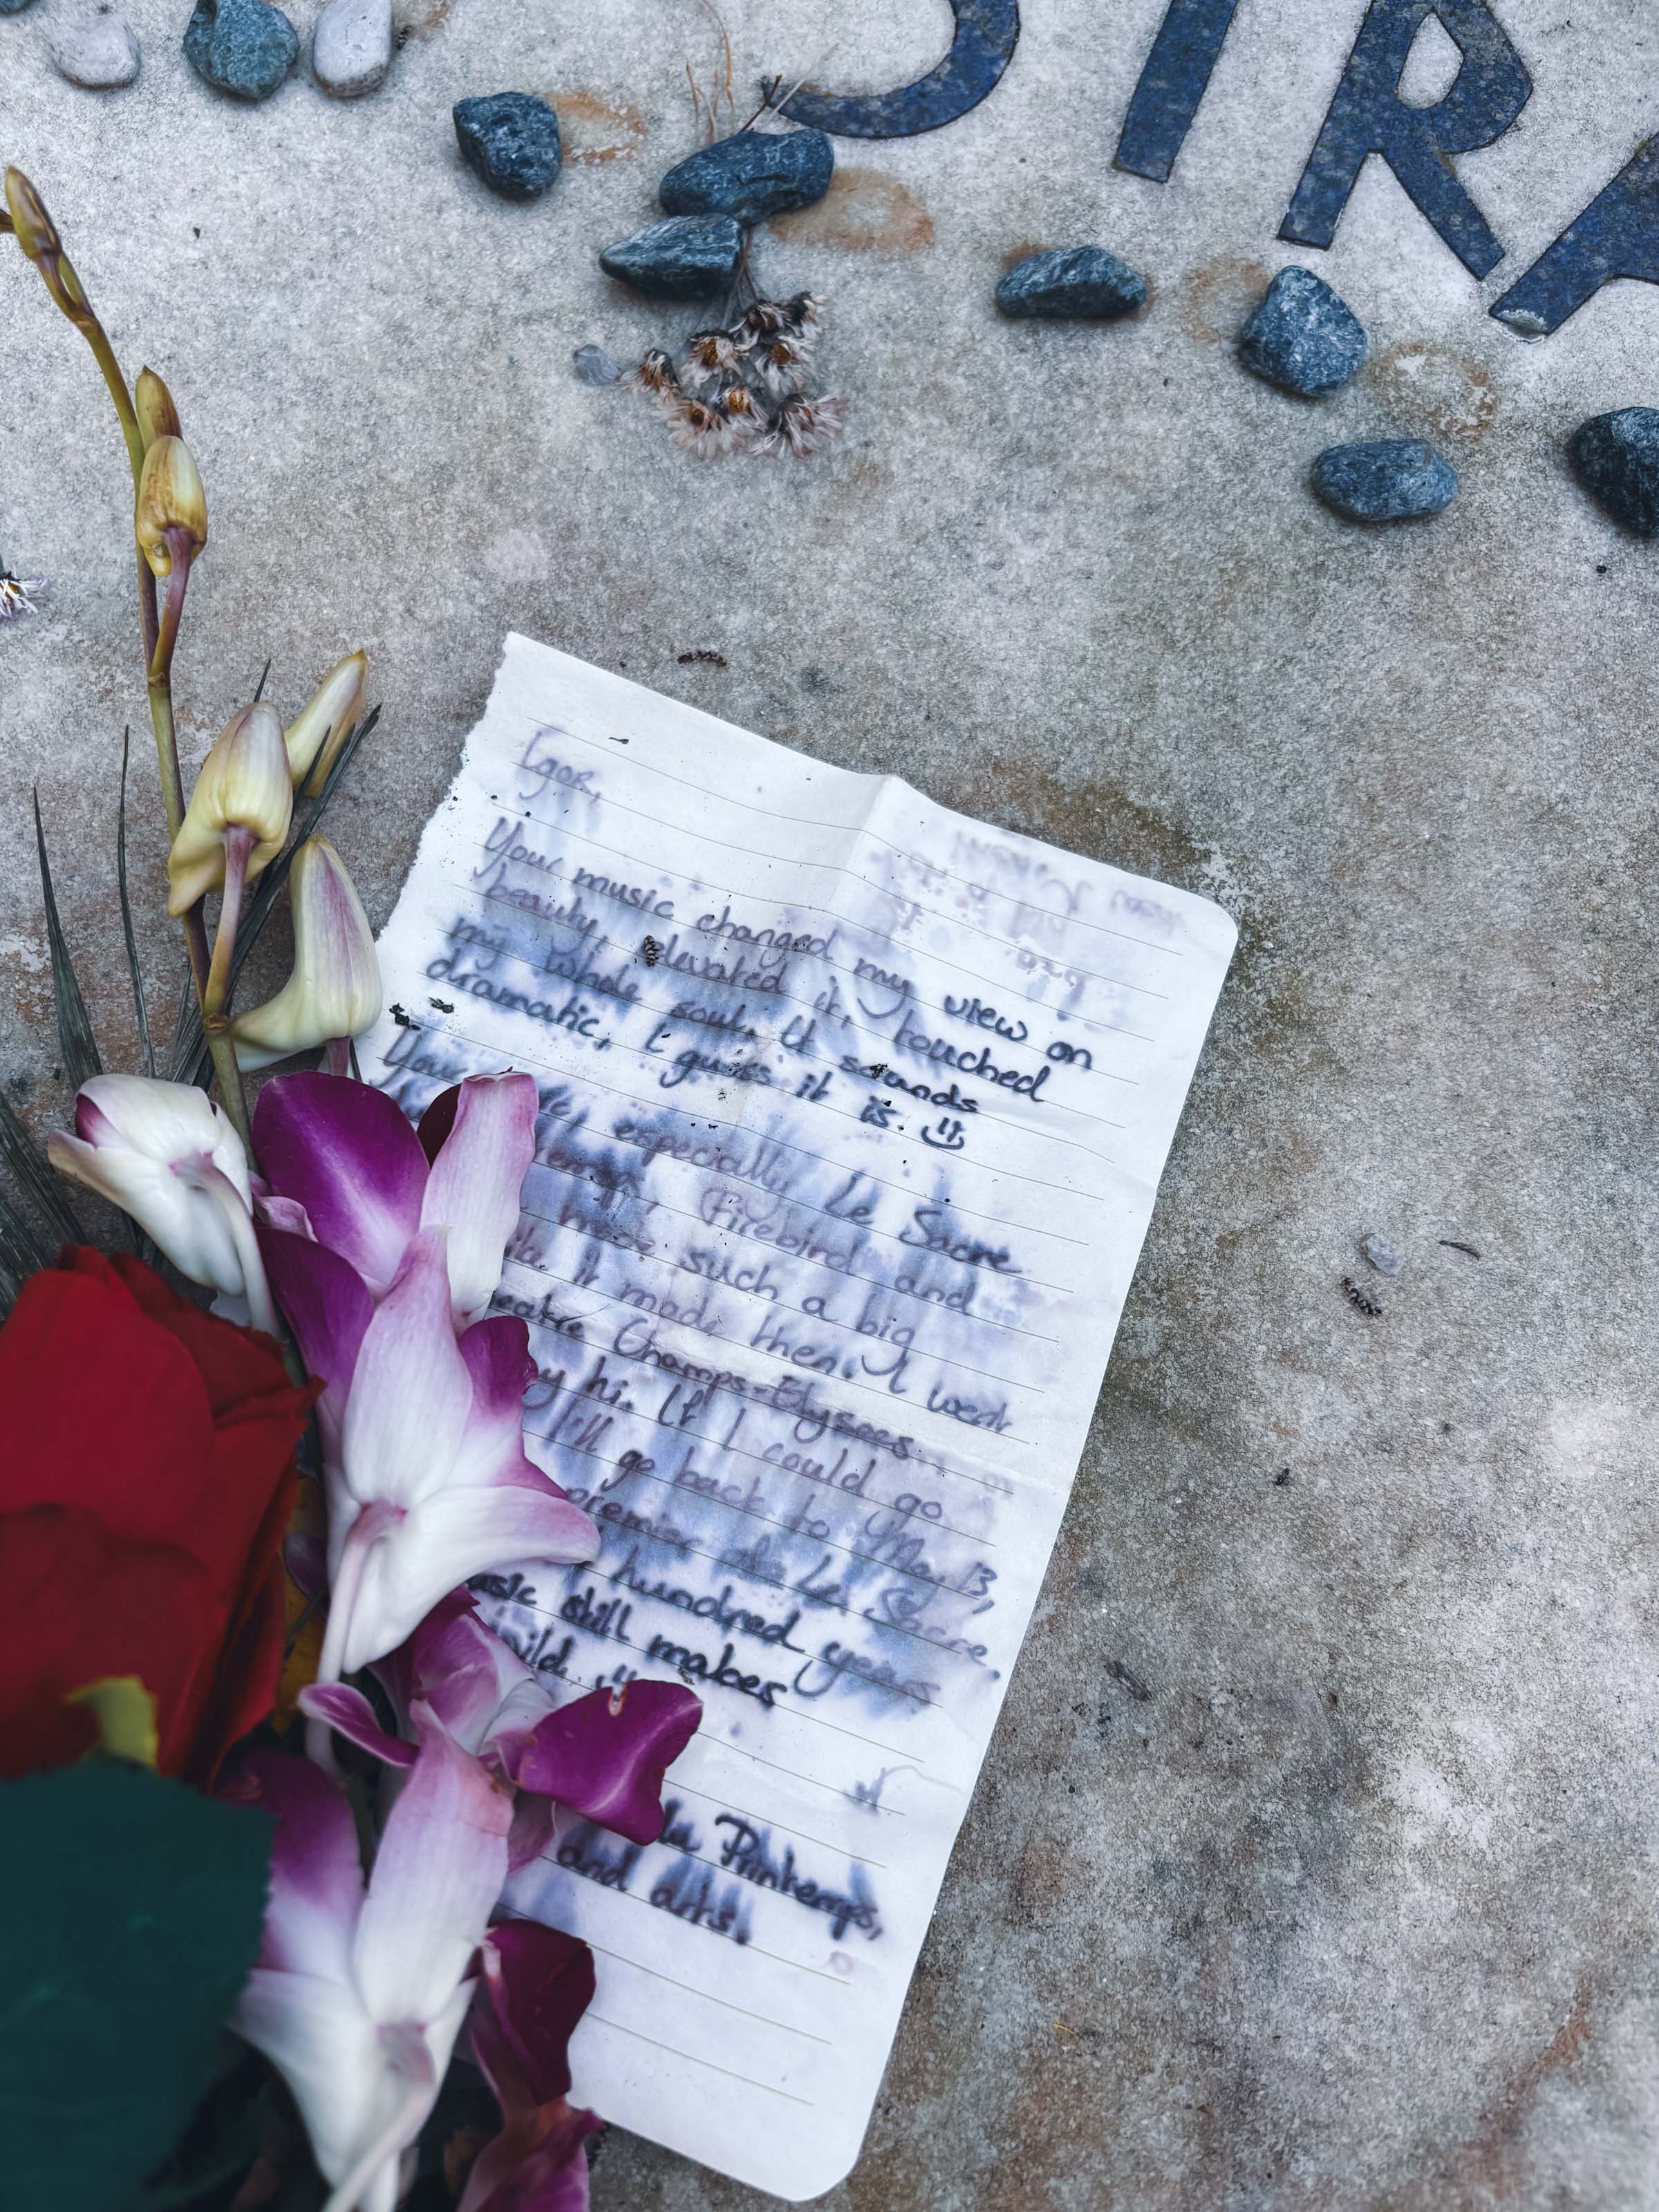 STRA
Igor,
Your music changed my view on
beauty, elevated it, touched
my whole soul. It sounds
dramatic, I guess it is
especially Le Sacre
Firebird and
such a big
It made then. I went
Champs-Elysees
hi. If I could go
I'll go back to May 13,
premise de Le Sacre.
hundred years
still makes
wild.
du Printemps,
and arts.